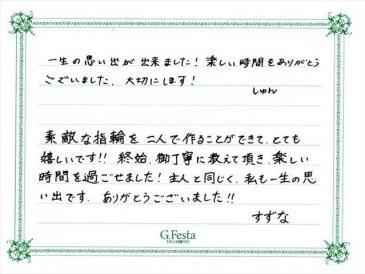 一生の思い出が出来ました！楽しい時間をありがとう
ございました。大切にします！
しゅん
素敵な指輪を二人で作ることができて、とても
嬉しいです!! 終始、御丁寧に教えて頂き、楽しい
時間を過ごせました！主人と同じく、私も一生の思
い出です。ありがとうございました!!
すずな
G.Festa
DIAMOND